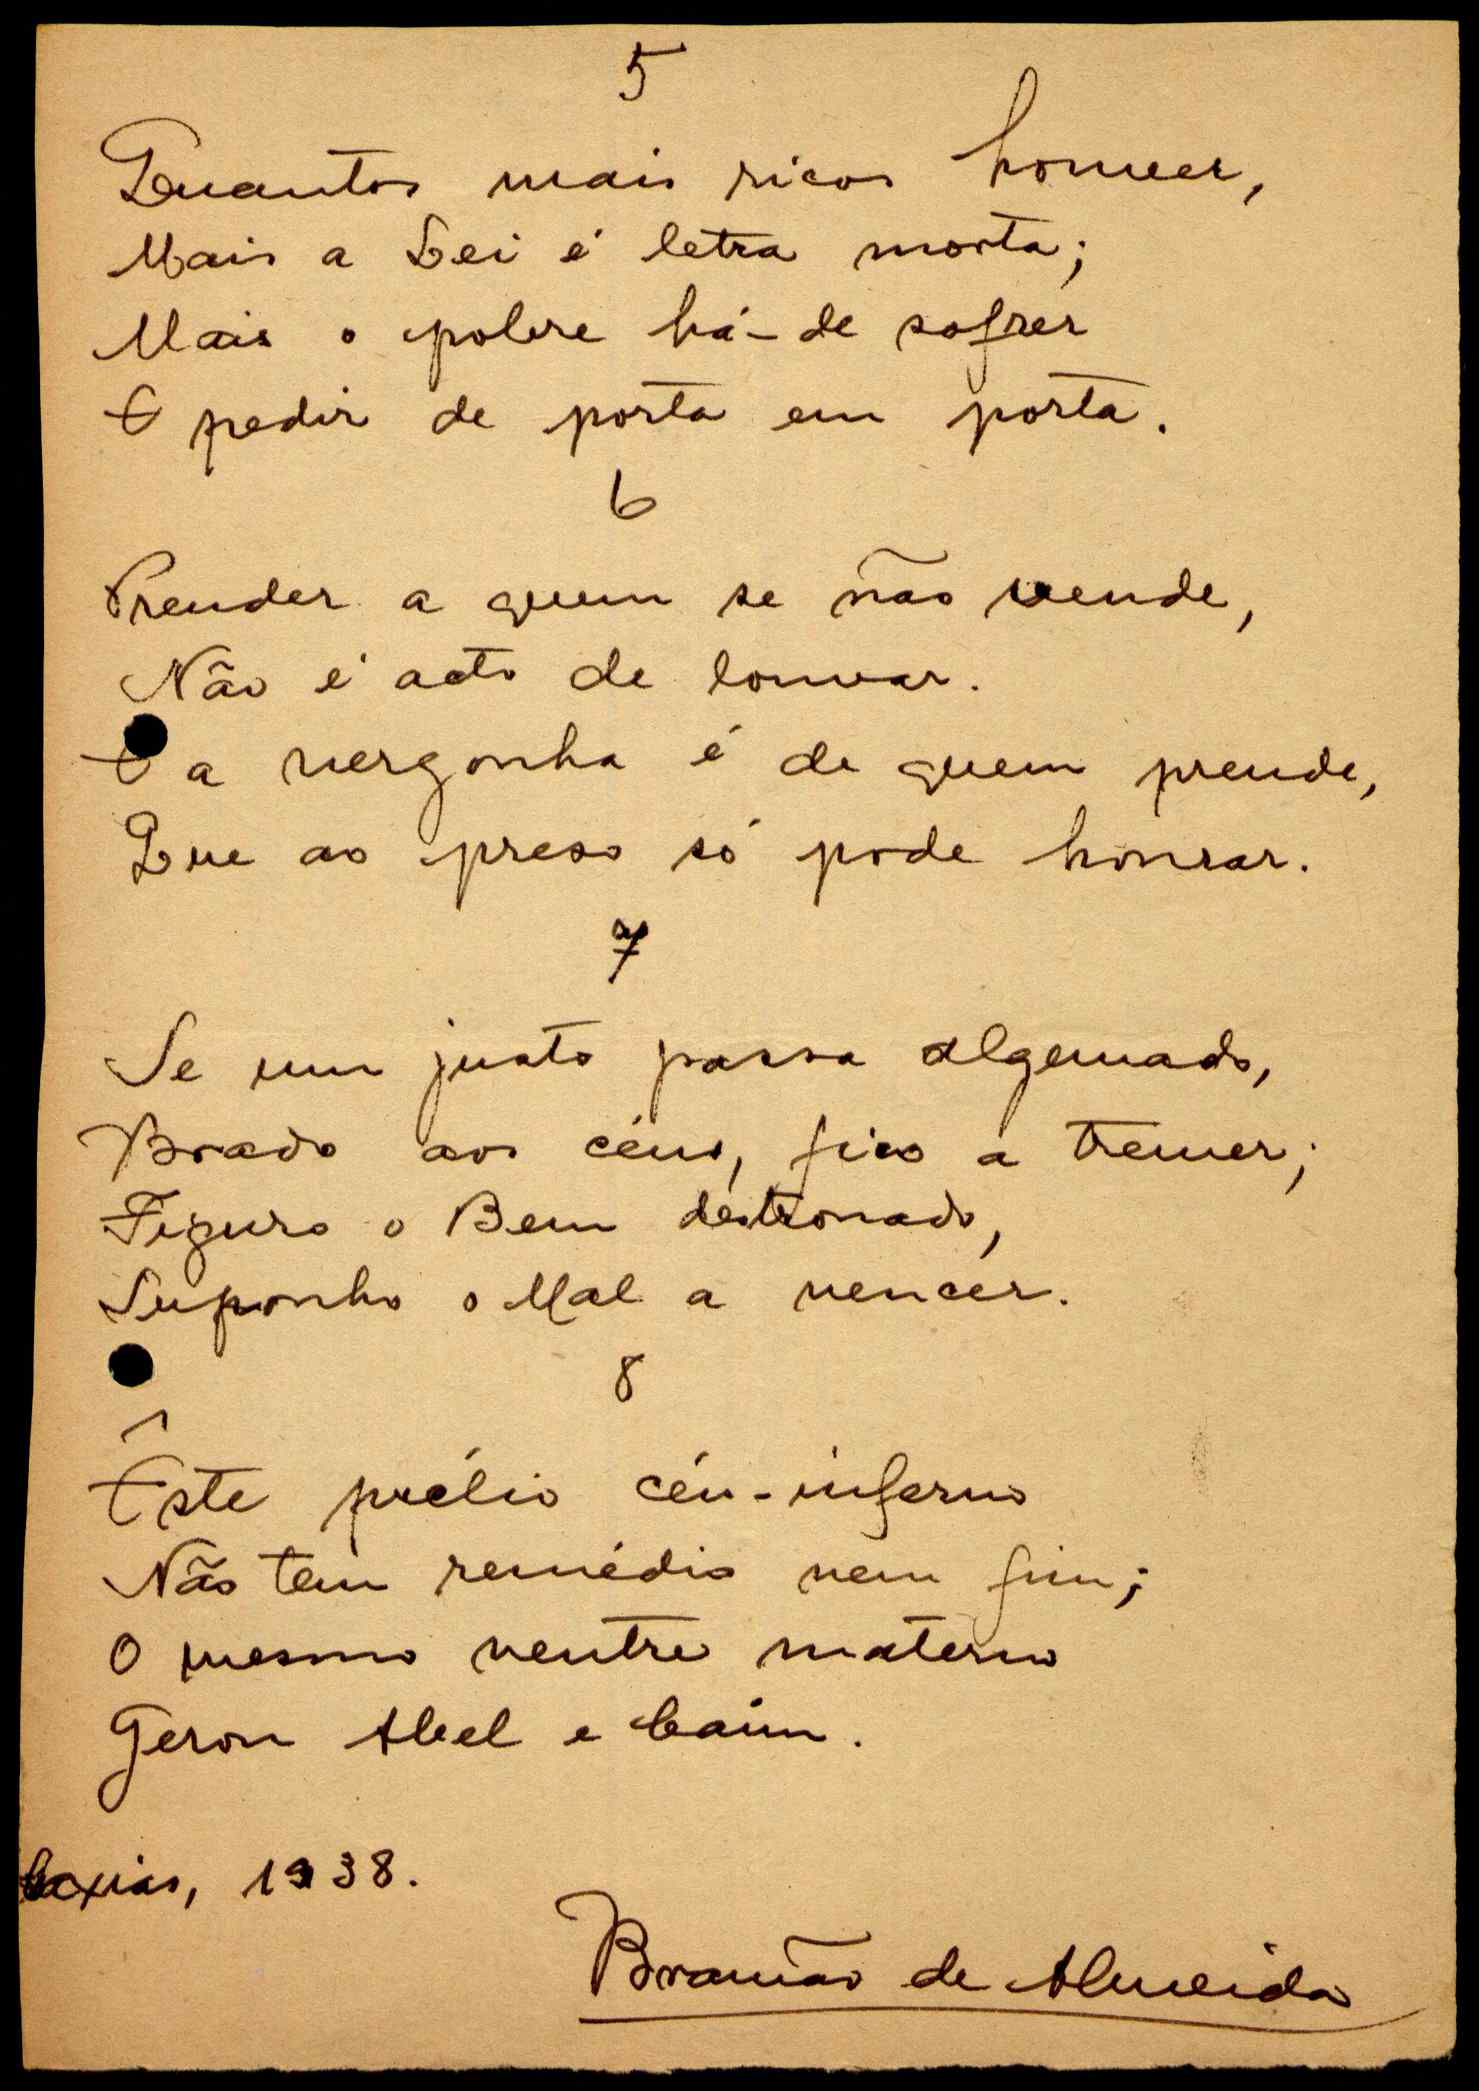 5
Quantos mais ricos houver,
Mais a Lei é letra morta;
Mais o pobre há-de sofrer
E pedir de porta em porta.
6
Prender a quem se não vende,
Não é acto de louvar.
E a vergonha é de quem prende,
Que ao preso só pode honrar.
7
Se um justo passa algemado,
Brado aos céus, fico a tremer;
Figuro o Bem destronado,
Suponho o Mal a vencer.
8
Êste prélio céu-inferno
Não tem remédio nem fim;
O mesmo ventre materno
Gerou Abel e Caim.
Caxias, 1938.
Bramão de Almeida